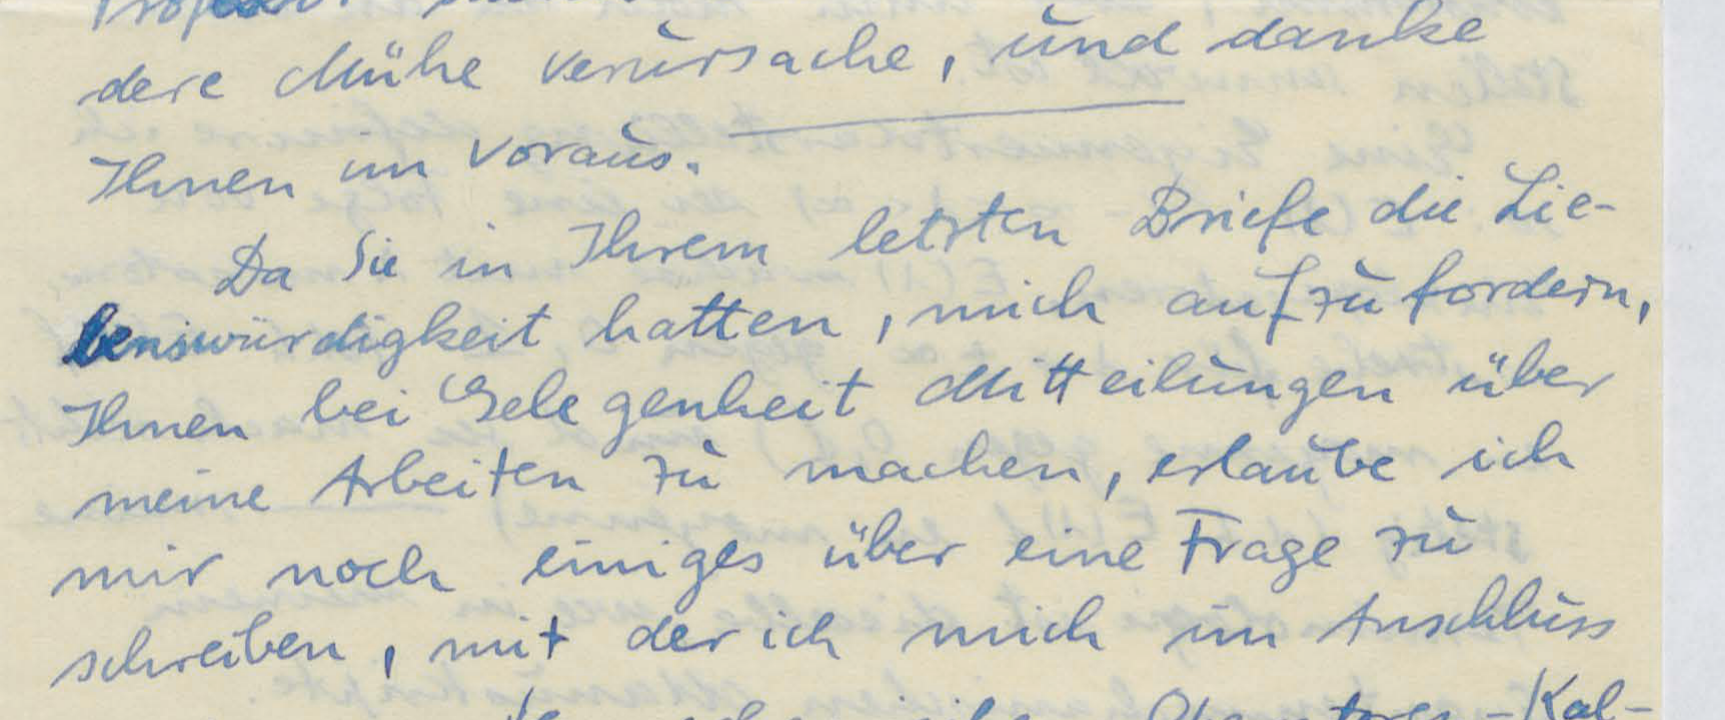 dere Mühe verursache, und danke
Ihnen im voraus.
Da Sie in Ihrem letzten Briefe die Lie-
benswürdigkeit hatten, mich aufzufordern,
Ihnen bei Gelegenheit Mitteilungen über
meine Arbeiten zu machen, erlaube ich
mir noch einiges über eine Frage zu
schreiben, mit der ich mich im Anschluss
Operatoren-Kal-